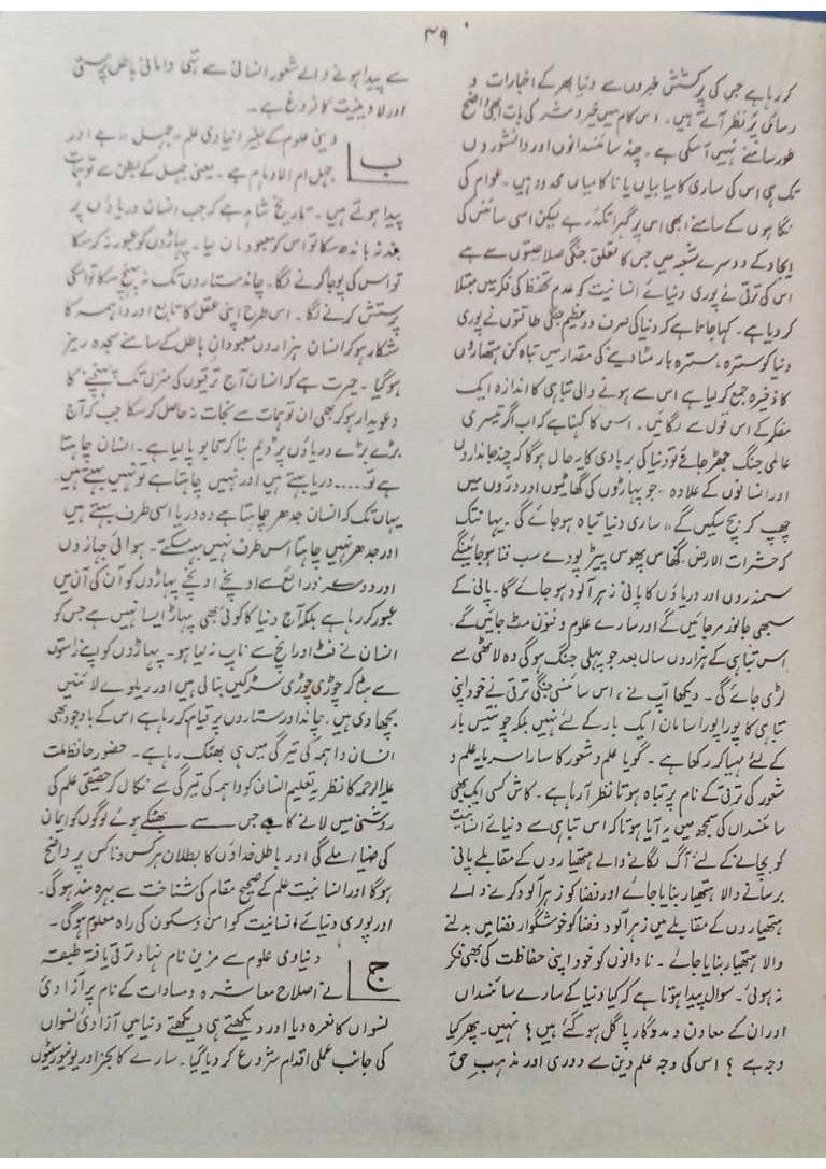 ۳۹
کر رہا ہے جس کی پرکشش خبروں سے دنیا بھر کے اخبارات و
رسائل پُر نظر آتے ہیں۔ اس کام میں خیر و شر کی بات ابھی واضح
طور سامنے نہیں آسکی ہے۔ چند سائنسدانوں اور دانشوروں
تک ہی اس کی ساری کامیابیاں یا ناکامیاں محدود ہیں۔ عوام کی
نگاہوں کے سامنے ابھی اس پر گہرا پردہ ہے لیکن اسی سائنس کی
ایجاد کے دوسرے شعبہ میں جس کا تعلق جنگی صلاحیتوں سے ہے
اس کی ترقی نے پوری دنیائے انسانیت کو عدم تحفظ کی فکر میں مبتلا
کر دیا ہے۔ کہا جاتا ہے کہ دنیا کی صرف دو عظیم جنگی طاقتوں نے پوری
دنیا کو سترہ، سترہ بار مٹا دینے کی مقدار میں تباہ کن ہتھیاروں
کا ذخیرہ جمع کر لیا ہے اس سے ہونے والی تباہی کا اندازہ ایک
مفکر کے اس قول سے لگائیں۔ اس کا کہنا ہے کہ اب اگر تیسری
عالمی جنگ چھڑ جائے تو دنیا کی بربادی کا یہ حال ہوگا کہ چند جانداروں
اور انسانوں کے علاوہ ۔ جو پہاڑوں کی گھاٹیوں اور دروں میں
چھپ کر بچ سکیں گے ،، ساری دنیا تباہ ہو جائے گی۔ یہانتک
کہ حشرات الارض، گھاس پھوس پیڑ پودے سب فنا ہو جائینگے
سمندروں اور دریاؤں کا پانی زہر آلود ہو جائے گا۔ پانی کے
سبھی جانور مر جائیں گے اور سارے علوم و فنون مٹ جائیں گے۔
اس تباہی کے ہزاروں سال بعد جو پہلی جنگ ہوگی وہ لاٹھی سے
لڑی جائے گی۔ دیکھا آپ نے، اس سائنسی جنگی ترقی نے خود اپنی
تباہی کا پورا پورا سامان ایک بار کے لئے نہیں بلکہ چونتیس بار
کے لئے مہیا کر رکھا ہے۔ گویا علم و شعور کا سارا سرمایہ علم و
شعور کی ترقی کے نام پر تباہ ہوتا نظر آرہا ہے۔ کاش کسی ایک بھی
سائنسداں کی سمجھ میں یہ آیا ہوتا کہ اس تباہی سے دنیائے انسانیت
کو بچانے کے لئے آگ لگانے والے ہتھیاروں کے مقابلے پانی
برسانے والا ہتھیار بنایا جائے اور فضا کو زہر آلود کرنے والے
ہتھیاروں کے مقابلے میں زہر آلود فضا کو خوشگوار فضا میں بدلنے
والا ہتھیار بنایا جائے۔ نادانوں کو خود اپنی حفاظت کی بھی فکر
نہ ہوئی۔ سوال پیدا ہوتا ہے کہ کیا دنیا کے سارے سائنسداں
اور ان کے معاون و مددگار پاگل ہو گئے ہیں؟ نہیں۔ پھر کیا
وجہ ہے؟ اس کی وجہ علم دین سے دوری اور مذہبِ حق
سے پیدا ہونے والے شعور انسانی سے تہی دامانی باطل پرستی
اور لادینیت کا فروغ ہے۔
ب
دینی علوم کے بغیر دنیاوی علم ۔جہل۔، ہے اور
جہل ام الاوہام ہے۔ یعنی جہل کے بطن سے توہمات
پیدا ہوتے ہیں۔ تاریخ شاہد ہے کہ جب انسان دریاؤں پر
بند نہ باندھ سکا تو اس کو معبود مان لیا۔ پہاڑوں کو عبور نہ کر سکا
تو اس کی پوجا کرنے لگا۔ چاند ستاروں تک نہ پہنچ سکا تو انکی
پرستش کرنے لگا۔ اس طرح اپنی عقل کا تابع اور واہمہ کا
شکار ہو کر انسان ہزاروں معبودانِ باطل کے سامنے سجدہ ریز
ہو گیا۔ حیرت ہے کہ انسان آج ترقیوں کی منزل تک پہنچنے کا
دعویدار ہو کر بھی ان توہمات سے نجات نہ حاصل کر سکا جب کہ آج
بڑے بڑے دریاؤں پر ڈیم بنا کر قابو پا لیا ہے۔ انسان چاہتا
ہے تو۔۔۔۔ دریا بہتے ہیں اور نہیں چاہتا ہے تو نہیں بہتے ہیں
یہاں تک کہ انسان جدھر چاہتا ہے وہ دریا اسی طرف بہتے ہیں
اور جدھر نہیں چاہتا اس طرف نہیں بہہ سکتے۔ ہوائی جہازوں
اور دوسرے ذرائع سے اونچے اونچے پہاڑوں کو آن کی آن میں
عبور کر رہا ہے بلکہ آج دنیا کا کوئی بھی پہاڑ ایسا نہیں ہے جس کو
انسان نے فٹ اور انچ سے ناپ نہ لیا ہو۔ پہاڑوں کو اپنے راستوں
سے ہٹا کر چوڑی چوڑی سڑکیں بنا لی ہیں اور ریلوے لائنیں
بچھا دی ہیں۔ چاند اور ستاروں پر قیام کر رہا ہے اس کے باوجود بھی
انسان واہمہ کی تیرگی میں ہی بھٹک رہا ہے۔ حضور حافظ ملت
علیہ الرحمہ کا نظریہ تعلیم انسان کو واہمہ کی تیرگی سے نکال کر حقیقی علم کی
روشنی میں لانے کا ہے جس سے بھٹکے ہوئے لوگوں کو ایمان
کی ضیاء ملے گی اور باطل خداؤں کا بطلان ہر کس و ناکس پر واضح
ہوگا اور انسانیت علم کے صحیح مقام کی شناخت سے بہرہ مند ہوگی۔
اور پوری دنیائے انسانیت کو امن و سکون کی راہ معلوم ہوگی۔
ج
دنیاوی علوم سے مزین نام نہاد ترقی یافتہ طبقہ
نے اصلاح معاشرہ و مساوات کے نام پر آزادیٔ
نسواں کا نعرہ دیا اور دیکھتے ہی دیکھتے دنیا میں آزادیٔ نسواں
کی جانب عملی اقدام شروع کر دیا گیا۔ سارے کالجز اور یونیورسٹیوں